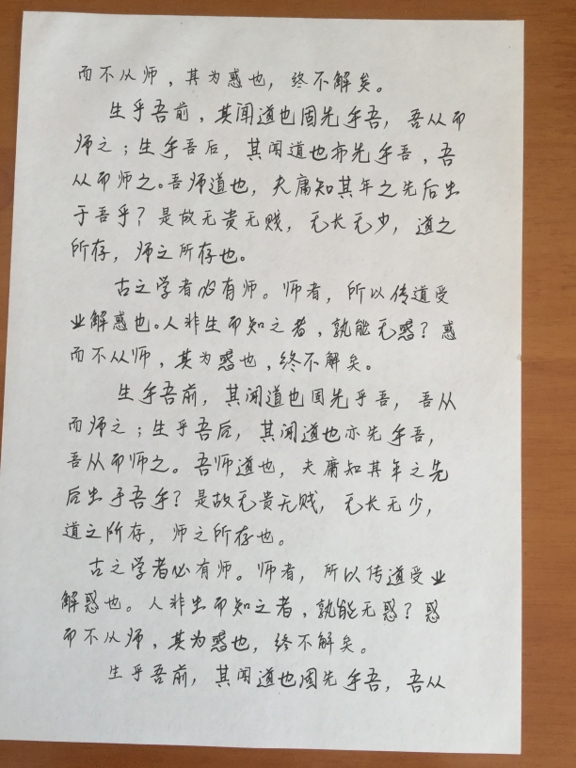 而不从师，其为惑也，终不解矣。
生乎吾前，其闻道也固先乎吾，吾从而
师之；生乎吾后，其闻道也亦先乎吾，吾
从而师之。吾师道也，夫庸知其年之先后生
于吾乎？是故无贵无贱，无长无少，道之
所存，师之所存也。
古之学者必有师。师者，所以传道受
业解惑也。人非生而知之者，孰能无惑？惑
而不从师，其为惑也，终不解矣。
生乎吾前，其闻道也固先乎吾，吾从
而师之；生乎吾后，其闻道也亦先乎吾，
吾从而师之。吾师道也，夫庸知其年之先
后生于吾乎？是故无贵无贱，无长无少，
道之所存，师之所存也。
古之学者必有师。师者，所以传道受业
解惑也。人非生而知之者，孰能无惑？惑
而不从师，其为惑也，终不解矣。
生乎吾前，其闻道也固先乎吾，吾从